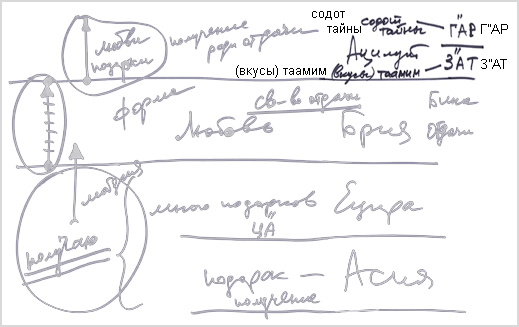 содот
тайны содот тайны Г"АР Г"АР
любви подарки получение ради отдачи
Ацилут
(вкусы) таамим (вкусы) таамим З"АТ З"АТ
форма св-ва отдачи Бина
Любовь Брия Отдачи
материя
много подарков Ецира
ЦА
получаю
подарок — Асия
получение